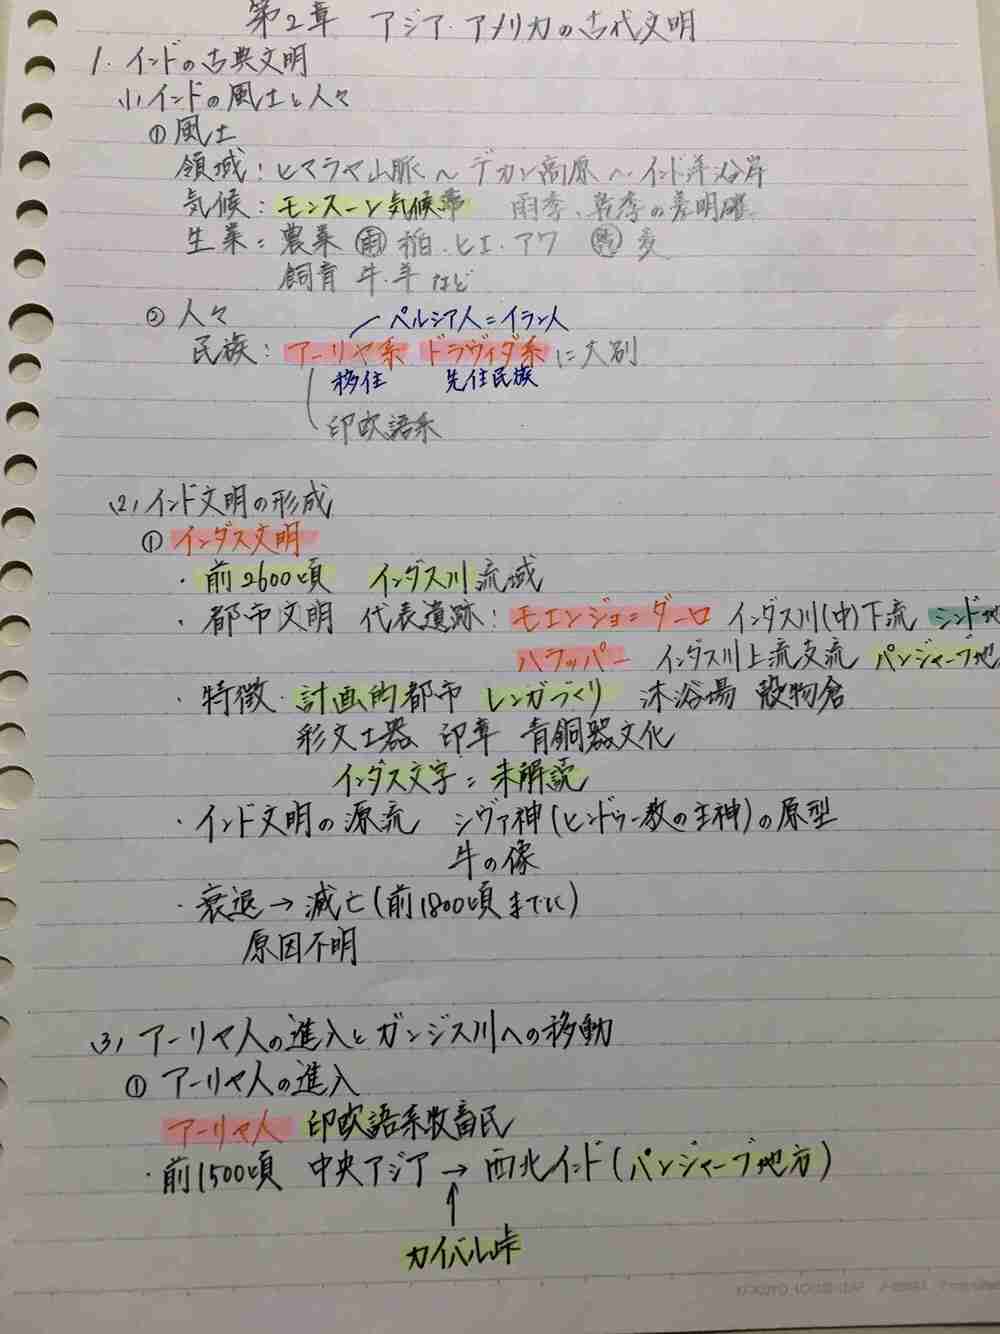 第2章 アジア・アメリカの古代文明
1. インドの古典文明
(1) インドの風土と人々
① 風土
領域：ヒマラヤ山脈 〜 デカン高原 〜 インド洋沿岸
気候：モンスーン気候帯 雨季、乾季の差明確
生業：農業 雨 稲・ヒエ・アワ 乾 麦
飼育 牛・羊など
② 人々
ペルシア人＝イラン人
民族：アーリヤ系 ドラヴィダ系 に大別
移住 先住民族
印欧語系
(2) インド文明の形成
① インダス文明
・前2600頃 インダス川流域
・都市文明 代表遺跡：モエンジョ＝ダーロ インダス川(中)下流 シンド地
ハラッパー インダス川上流支流 パンジャーブ地
・特徴・計画的都市 レンガづくり 沐浴場 穀物倉
彩文土器 印章 青銅器文化
インダス文字＝未解読
・インド文明の源流 シヴァ神(ヒンドゥー教の主神)の原型
牛の像
・衰退→滅亡(前1800頃までに)
原因不明
(3) アーリヤ人の進入とガンジス川への移動
① アーリヤ人の進入
アーリヤ人 印欧語系牧畜民
・前1500頃 中央アジア → 西北インド(パンジャーブ地方)
↑
カイバル峠